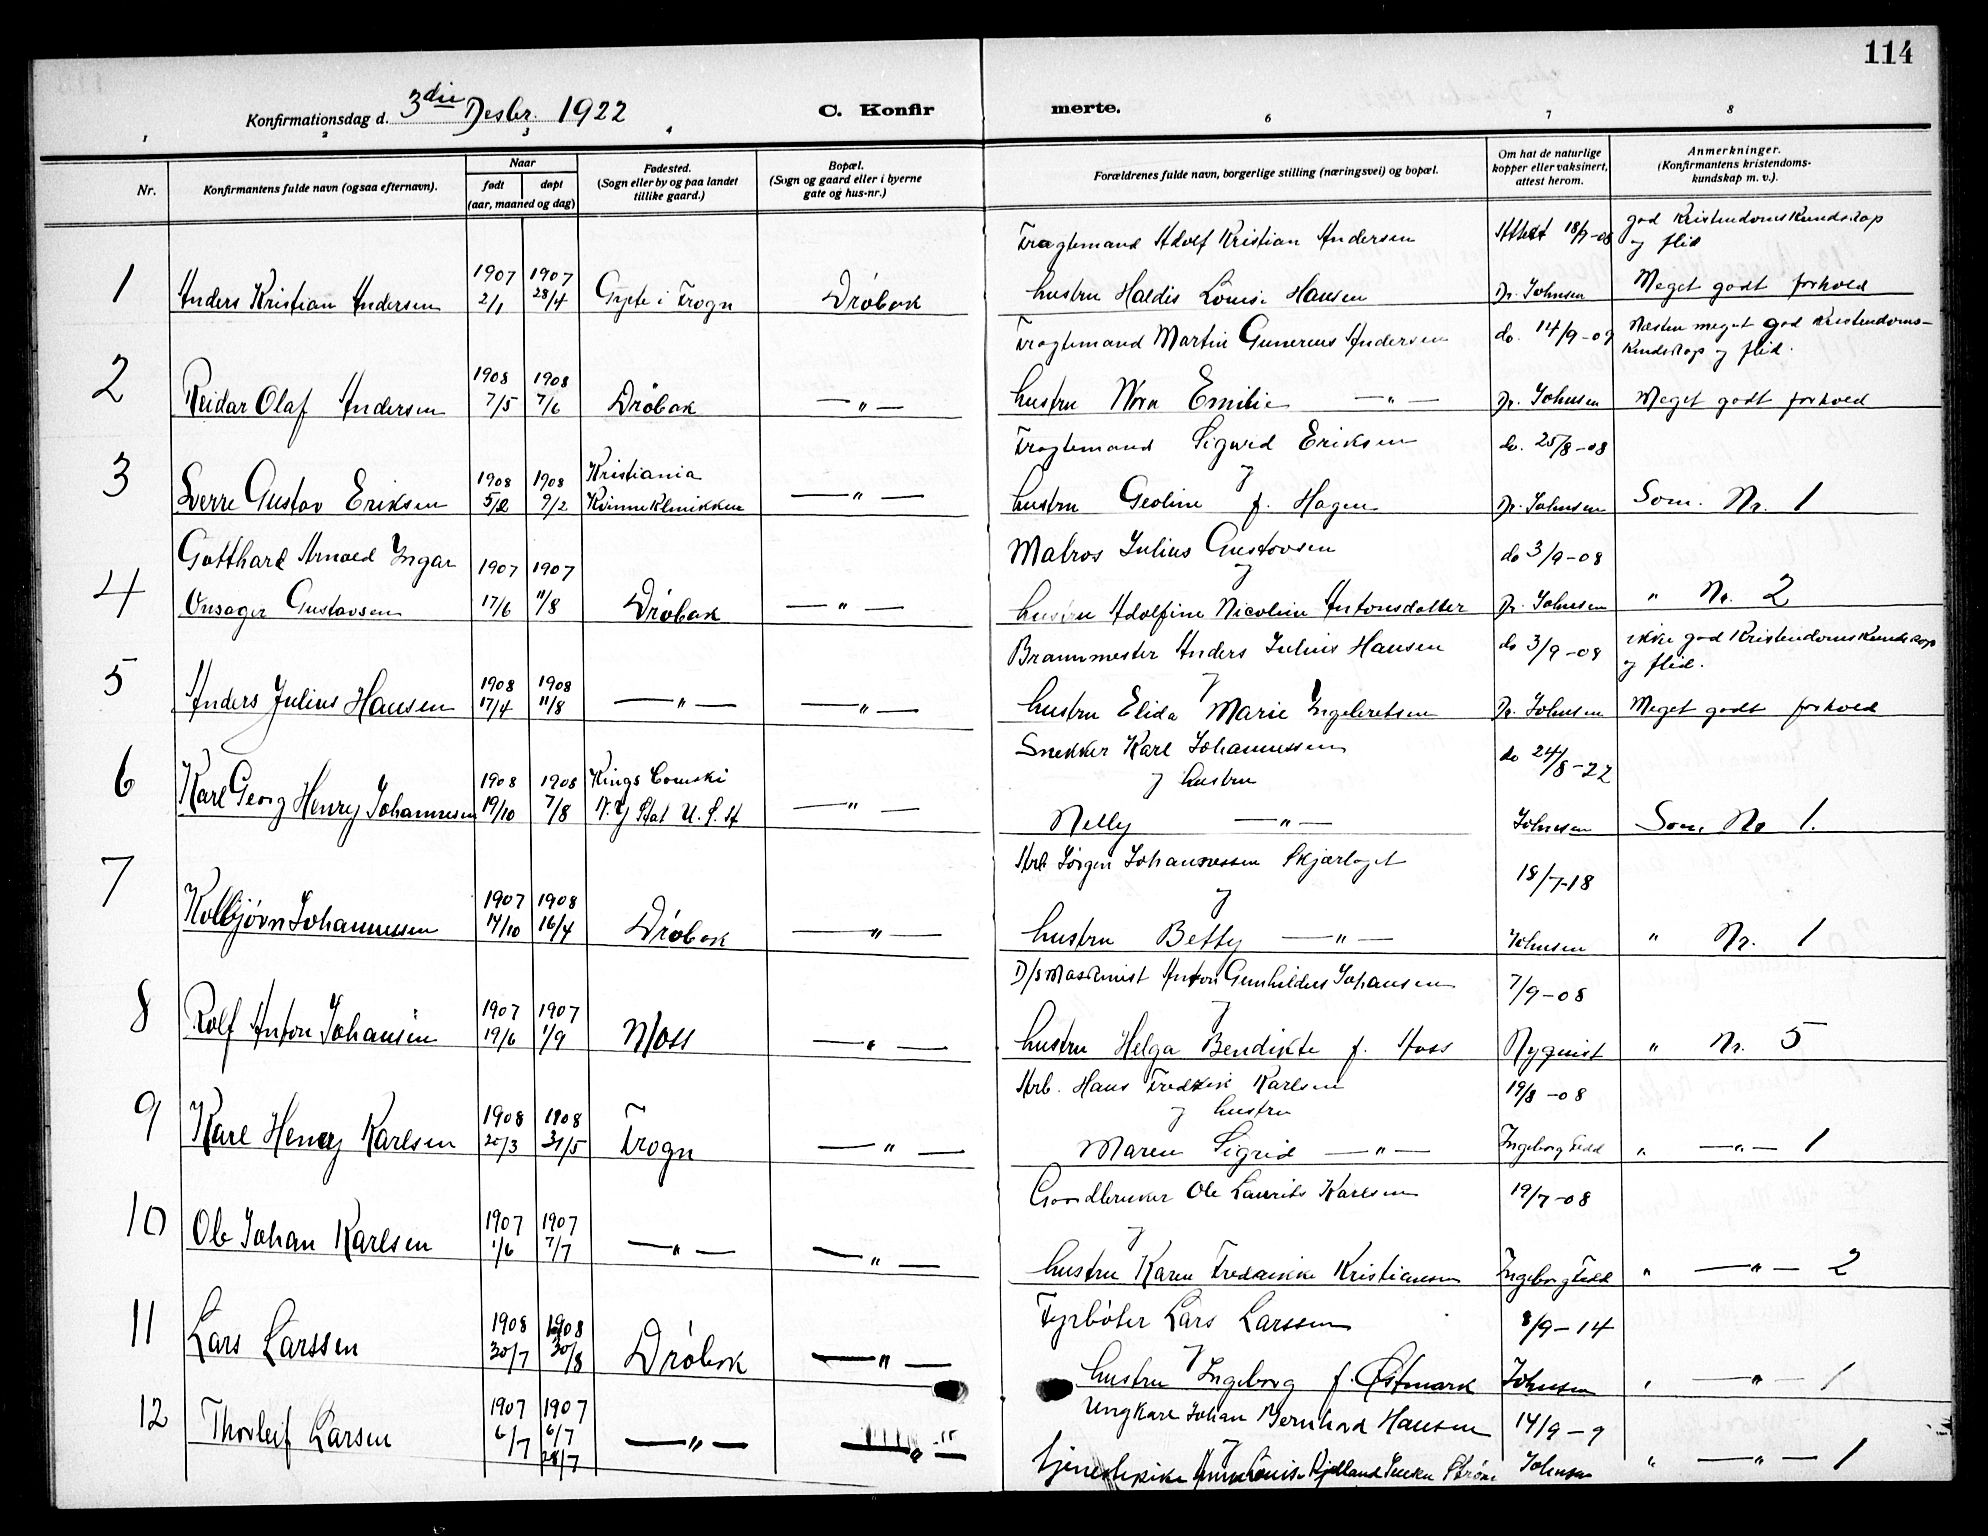 114
Konfirmationsdag d. 3die Desbr. 1922
C. Konfir
merte.
1 2 3 4 6 7 8
Nr.
Konfirmantens fulde navn (ogsaa efternavn).
Naar
født døpt
(aar, maaned og dag)
Fødested.
(Sogn eller by og paa landet
tillike gaard.)
Bopæl.
(Sogn og gaard eller i byerne
gate og hus-nr.)
Forældrenes fulde navn, borgerlige stilling (næringsvei) og bopæl.
Om hat de naturlige
kopper eller vaksinert,
attest herom.
Anmerkninger.
(Konfirmantens kristendoms-
kundskap m. v.).
Fragtemand Adolf Kristian Andersen Attest 18/9-08 god Kristendomskundskap
og flid
1907 1907
1 Anders Kristian Andersen 2/1 28/4 i Frogn Drøbak hustru Haldis Louise Hansen Dr. Johnsen Meget godt forhold
Fragtemand Martin Gunerius Andersen do. 14/9-09 Næsten meget god Kristendoms-
kundskap og flid.
1908 1908
2 Reidar Olaf Andersen 7/5 7/6 Drøbak — " — hustru Nora Emilie — " — Dr. Johnsen Meget godt forhold
Fragtemand Sigurd Eriksen do. 25/8-08
og
3 1908 1908 Kristiania
Sverre Gustav Eriksen 5/2 9/2 Kvinneklinikken — " — hustru Geoline f. Hagen Dr. Johnsen Som. Nr. 1
Gotthard Arnold Ingar 1907 1907 Matros Julius Gustavsen do 3/9-08
og
4 Onsager Gustavsen 17/6 11/8 Drøbak — " — hustru Adolfine Nicoline Antonsdatter Dr. Johnsen " Nr. 2
Brannmester Anders Julius Hansen do 3/9-08 ikke god Kristendomskundskap
og flid.
1908 1908 og
5 Anders Julius Hansen 17/4 11/8 — " — — " — hustru Elida Marie Ingebretsen Dr. Johnsen Meget godt forhold
Snekker Karl Johannessen do 24/8-22
og hustru
6 1908 1908 Kings
Karl Georg Henry Johannesen 19/10 7/8 N.Y Stat U.S.A — " — Nelly — " — Johnsen Som No 1.
Arb Jørgen Johannessen Skjærlaget 18/7-18
og
7 1907 1908
Kolbjørn Johannessen 14/10 16/4 Drøbak — " — hustru Betty — " — Johnsen " Nr. 1
D/s Maskinist Anton Johansen 7/9-08
og
8 1907 1907
Rolf Anton Johansen 19/6 1/9 Moss — " — hustru Helga Bendikte f. Aass Nyquist " Nr. 5
Arb. Hans Fredrik Karlsen 19/8-08
og hustru
9 1908 1908
Karl Henry Karlsen 20/3 31/5 Frogn — " — Maren Sigrid — " — Ingeborg " — " — 1
Gaardbruker Ole Laurits Karlsen 19/7-08
og
10 1907 1907
Ole Johan Karlsen 1/6 7/7 — " — — " — hustru Karen Fredrikke Kristiansen Ingeborg " — " — 2
Fyrbøter Lars Larssen 8/9-14
og
11 1908 1908
Lars Larssen 30/7 30/8 Drøbak — " — hustru Ingeborg f. Østmark Johnsen " — " — 1
Ungkarl Johan Bernhard Hansen 14/9-9
og
12 1907 1907
Thorleif Larsen 6/7 6/7 — " — — " — tjenestepike Anna Louise Johnsen " — " — 1
28/7